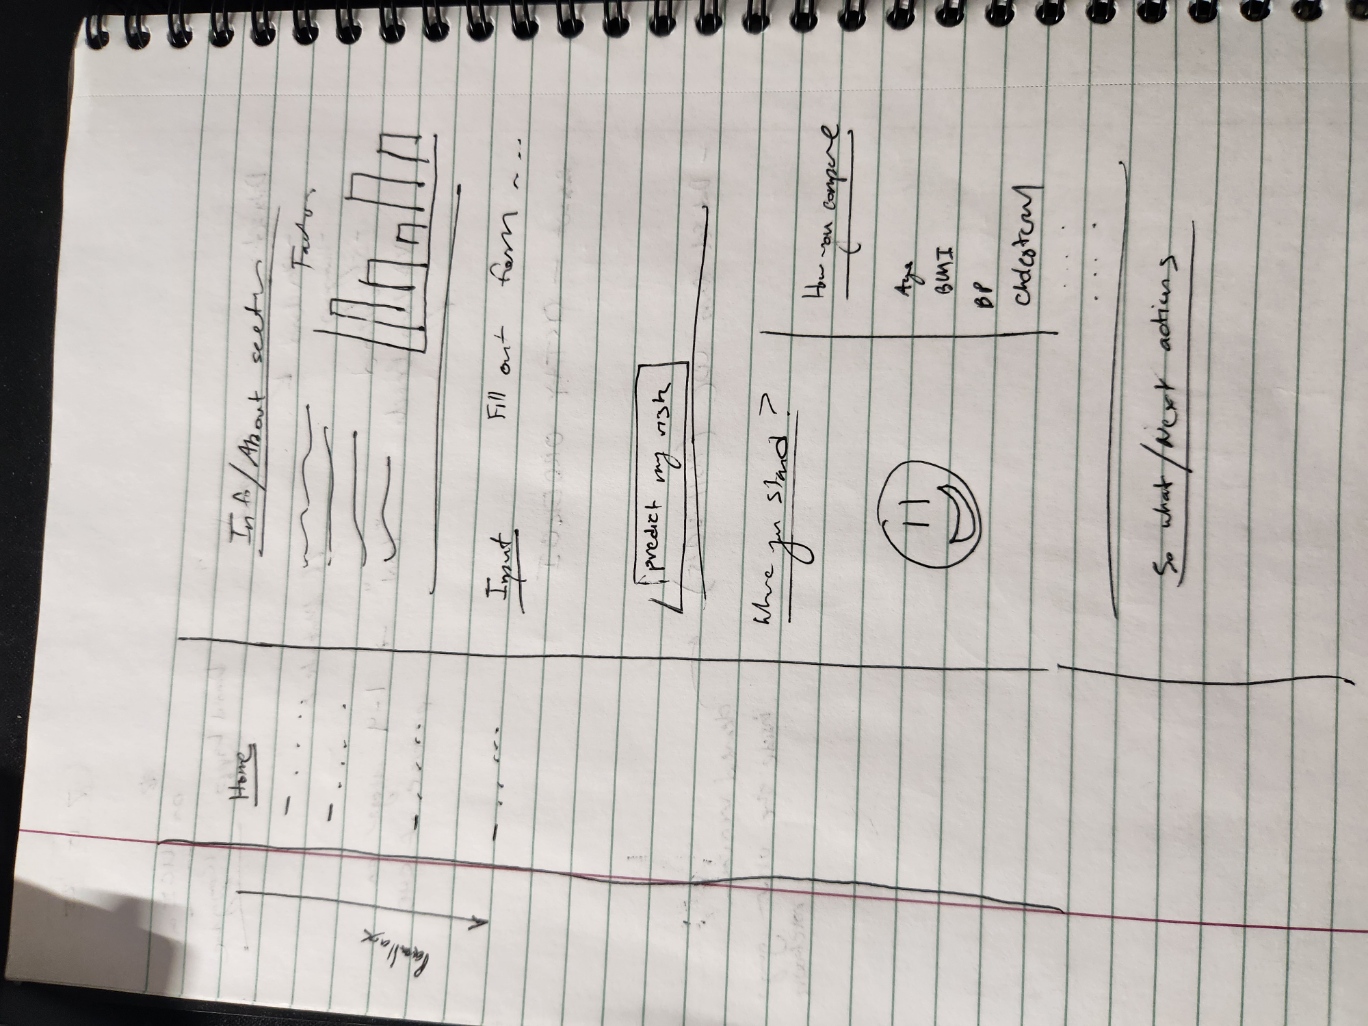 Home
Parallax
Info/About sectn
Factors
Input
Fill out form ....
predict my risk
Where you stand?
How you compare
Age
BMI
BP
Cholesterol
So what/Next actions